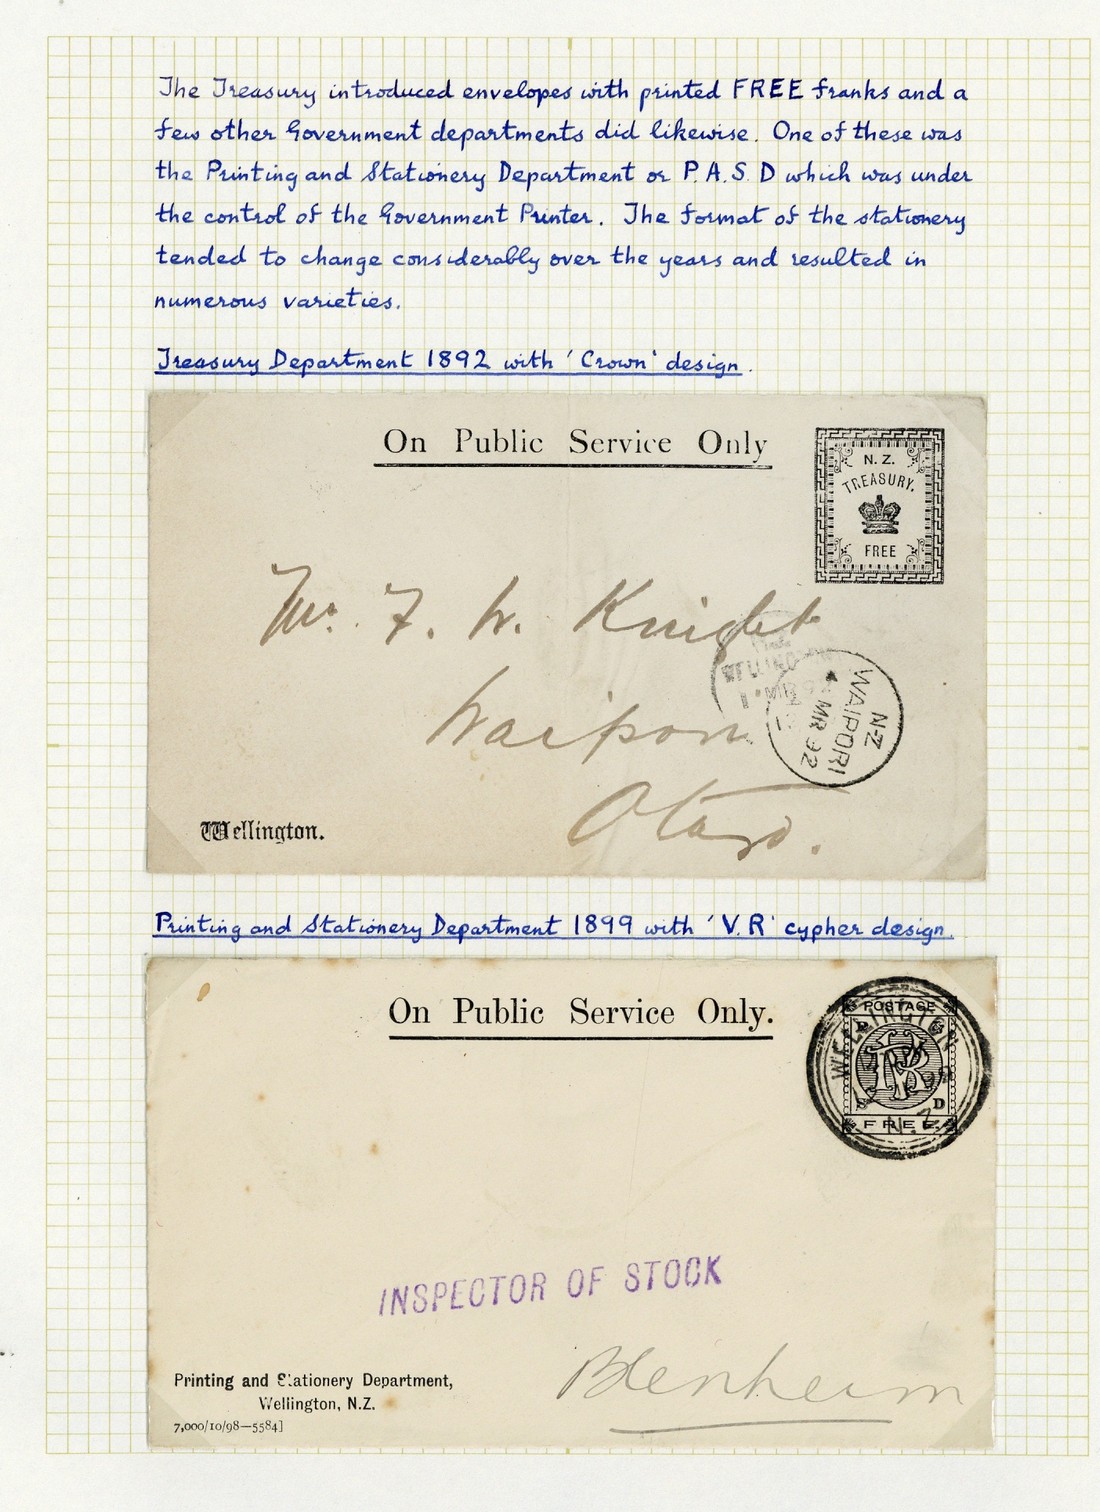 The Treasury introduced envelopes with printed FREE franks and a
few other Government departments did likewise. One of these was
the Printing and Stationery Department or P.A.S.D which was under
the control of the Government Printer. The format of the stationery
tended to change considerably over the years and resulted in
numerous varieties.
Treasury Department 1892 with 'Crown' design.
On Public Service Only
N.Z.
TREASURY.
FREE
Mr. F. W. Knight
WELLINGTON
N-Z
WAIPORI
MR 92
Waipori
Otago.
Wellington.
Printing and Stationery Department 1899 with 'V.R' cypher design.
On Public Service Only.
POSTAGE
WELLINGTON
N.Z.
D
FREE
INSPECTOR OF STOCK
Blenheim
Printing and Stationery Department,
Wellington, N.Z.
7,000/10/98—5584]